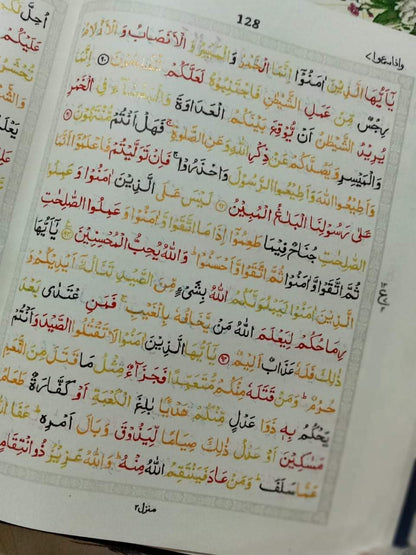 128
واذاسمعوا ٧
يٰۤاَيُّهَا الَّذِيْنَ اٰمَنُوْۤا اِنَّمَا الْخَمْرُ وَالْمَيْسِرُ وَالْاَنْصَابُ وَالْاَزْلَامُ
رِجْسٌ مِّنْ عَمَلِ الشَّيْطٰنِ فَاجْتَنِبُوْهُ لَعَلَّكُمْ تُفْلِحُوْنَ ﴿٩٠﴾ اِنَّمَا
يُرِيْدُ الشَّيْطٰنُ اَنْ يُّوْقِعَ بَيْنَكُمُ الْعَدَاوَةَ وَالْبَغْضَآءَ فِى الْخَمْرِ
وَالْمَيْسِرِ وَيَصُدَّكُمْ عَنْ ذِكْرِ اللّٰهِ وَعَنِ الصَّلٰوةِ ۚ فَهَلْ اَنْتُمْ مُّنْتَهُوْنَ ﴿٩١﴾
وَاَطِيْعُوا اللّٰهَ وَاَطِيْعُوا الرَّسُوْلَ وَاحْذَرُوْا ۚ فَاِنْ تَوَلَّيْتُمْ فَاعْلَمُوْۤا اَنَّمَا
عَلٰى رَسُوْلِنَا الْبَلٰغُ الْمُبِيْنُ ﴿٩٢﴾ لَيْسَ عَلَى الَّذِيْنَ اٰمَنُوْا وَعَمِلُوا
الصّٰلِحٰتِ جُنَاحٌ فِيْمَا طَعِمُوْۤا اِذَا مَا اتَّقَوْا وَّاٰمَنُوْا وَعَمِلُوا الصّٰلِحٰتِ
ثُمَّ اتَّقَوْا وَّاٰمَنُوْا ثُمَّ اتَّقَوْا وَّاَحْسَنُوْا ؕ وَاللّٰهُ يُحِبُّ الْمُحْسِنِيْنَ ﴿٩٣﴾ يٰۤاَيُّهَا
الَّذِيْنَ اٰمَنُوْا لَيَبْلُوَنَّكُمُ اللّٰهُ بِشَىْءٍ مِّنَ الصَّيْدِ تَنَالُهٗۤ اَيْدِيْكُمْ وَ
رِمَاحُكُمْ لِيَعْلَمَ اللّٰهُ مَنْ يَّخَافُهٗ بِالْغَيْبِ ۚ فَمَنِ اعْتَدٰى بَعْدَ
ذٰلِكَ فَلَهٗ عَذَابٌ اَلِيْمٌ ﴿٩٤﴾ يٰۤاَيُّهَا الَّذِيْنَ اٰمَنُوْا لَا تَقْتُلُوا الصَّيْدَ وَاَنْتُمْ
حُرُمٌ ؕ وَمَنْ قَتَلَهٗ مِنْكُمْ مُّتَعَمِّدًا فَجَزَآءٌ مِّثْلُ مَا قَتَلَ مِنَ النَّعَمِ
يَحْكُمُ بِهٖ ذَوَا عَدْلٍ مِّنْكُمْ هَدْيًۢا بٰلِغَ الْكَعْبَةِ اَوْ كَفَّارَةٌ طَعَامُ
مَسٰكِيْنَ اَوْ عَدْلُ ذٰلِكَ صِيَامًا لِّيَذُوْقَ وَبَالَ اَمْرِهٖ ؕ عَفَا اللّٰهُ
عَمَّا سَلَفَ ؕ وَمَنْ عَادَ فَيَنْتَقِمُ اللّٰهُ مِنْهُ ؕ وَاللّٰهُ عَزِيْزٌ ذُو انْتِقَامٍ
منزل ٢